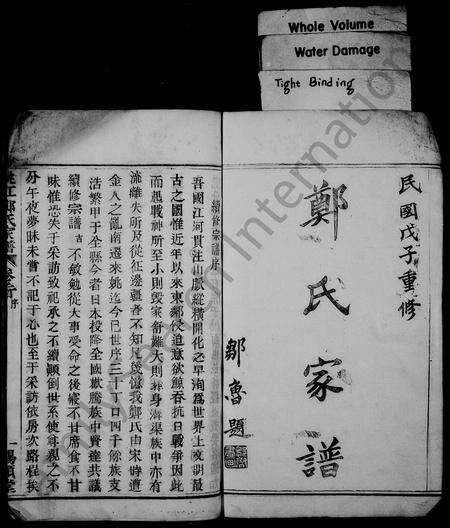 Whole Volume
Water Damage
Tight Binding
民國戊子重修
鄭氏家譜
鄒魯題
續修宗譜序
吾國江河貫注山脈縱橫開化之早洵為世界上文明最
古之國惟近年以來東鄰侵迫意欲鯨吞抗日戰爭因此
而起戰神所至小則毀家紓難大則葬身溝渠族中亦有
流離失所及從征邊疆者不知凡幾憶我鄭氏由宋時遭
金人之亂南遷來姚迄今已世序三十丁口四千餘族支
浩繁甲于全縣今者日本投降全國歡騰族中賢達共議
續修宗譜 不敏勉從大事受命之後寢不甘席食不甘
味惟恐失于采訪致祀承之不續顛倒世系使尊親之不
分午夜夢寐未嘗不記于心也至于采訪依房次路程挨